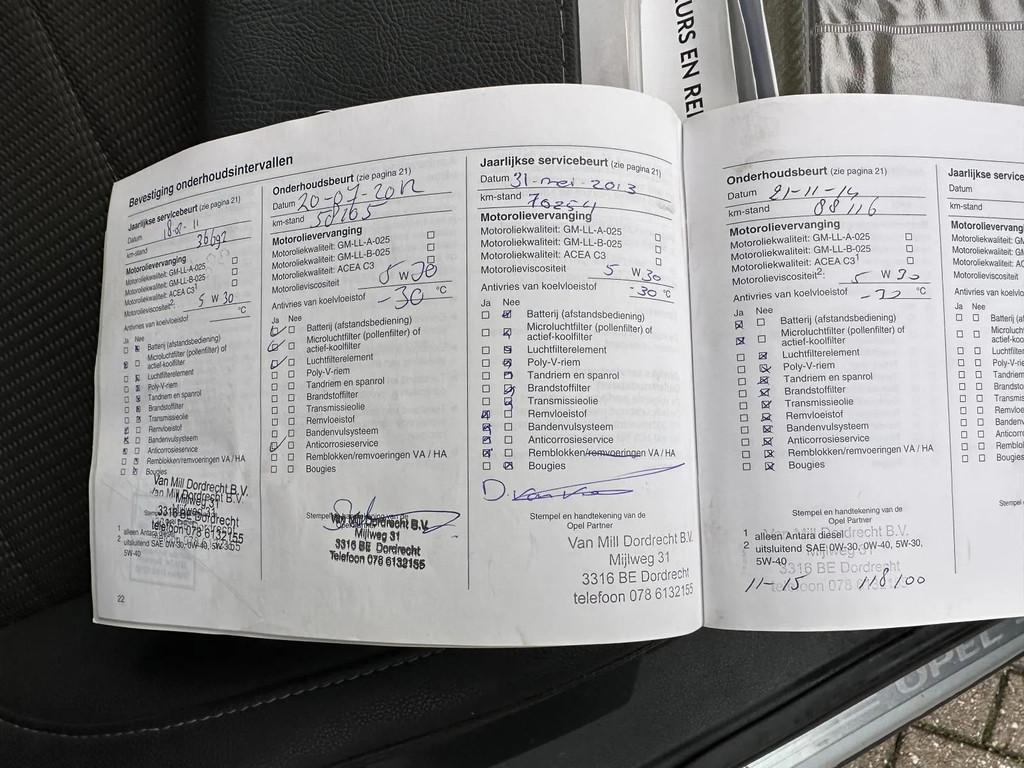 EURS EN REI
Bevestiging onderhoudsintervallen
Jaarlijkse servicebeurt (zie pagina 21)
Datum
km-stand
Motorolievervanging
Motoroliekwaliteit: GM-LL-A-025
Motoroliekwaliteit: GM-LL-B-025
Motoroliekwaliteit: ACEA C3¹
Motorolieviscositeit²: 5 W 30
Antivries van koelvloeistof °C
Ja Nee
Batterij (afstandsbediening)
Microluchtfilter (pollenfilter) of
actief-koolfilter
Luchtfilterelement
Poly-V-riem
Tandriem en spanrol
Brandstoffilter
Transmissieolie
Remvloeistof
Bandenvulsysteem
Anticorrosieservice
Remblokken/remvoeringen VA / HA
Bougies
Van Mill Dordrecht B.V.
Mijlweg 31
3316 BE Dordrecht
telefoon 078 6132155
1 alleen Antara diesel
2 uitsluitend SAE 0W-30, 0W-40, 5W-30
5W-40
22
Onderhoudsbeurt (zie pagina 21)
Datum 20-07-2012
km-stand 58165
Motorolievervanging
Motoroliekwaliteit: GM-LL-A-025
Motoroliekwaliteit: GM-LL-B-025
Motoroliekwaliteit: ACEA C3
Motorolieviscositeit W 30
Antivries van koelvloeistof -30 °C
Ja Nee
Batterij (afstandsbediening)
Microluchtfilter (pollenfilter) of
actief-koolfilter
Luchtfilterelement
Poly-V-riem
Tandriem en spanrol
Brandstoffilter
Transmissieolie
Remvloeistof
Bandenvulsysteem
Anticorrosieservice
Remblokken/remvoeringen VA / HA
Bougies
Stempel en handtekening van de
Van Mill Dordrecht B.V.
Mijlweg 31
3316 BE Dordrecht
Telefoon 078 6132155
Jaarlijkse servicebeurt (zie pagina 21)
Datum 31-mei-2013
km-stand 70254
Motorolievervanging
Motoroliekwaliteit: GM-LL-A-025
Motoroliekwaliteit: GM-LL-B-025
Motoroliekwaliteit: ACEA C3
Motorolieviscositeit 5 W 30
Antivries van koelvloeistof -30 °C
Ja Nee
Batterij (afstandsbediening)
Microluchtfilter (pollenfilter) of
actief-koolfilter
Luchtfilterelement
Poly-V-riem
Tandriem en spanrol
Brandstoffilter
Transmissieolie
Remvloeistof
Bandenvulsysteem
Anticorrosieservice
Remblokken/remvoeringen VA / HA
Bougies
Stempel en handtekening van de
Opel Partner
Van Mill Dordrecht B.V.
Mijlweg 31
3316 BE Dordrecht
telefoon 078 6132155
Onderhoudsbeurt (zie pagina 21)
Datum 21-11-14
km-stand 88116
Motorolievervanging
Motoroliekwaliteit: GM-LL-A-025
Motoroliekwaliteit: GM-LL-B-025
Motoroliekwaliteit: ACEA C3¹
Motorolieviscositeit²: 5 W 30
Antivries van koelvloeistof -30 °C
Ja Nee
Batterij (afstandsbediening)
Microluchtfilter (pollenfilter) of
actief-koolfilter
Luchtfilterelement
Poly-V-riem
Tandriem en spanrol
Brandstoffilter
Transmissieolie
Remvloeistof
Bandenvulsysteem
Anticorrosieservice
Remblokken/remvoeringen VA / HA
Bougies
Stempel en handtekening van de
Opel Partner
1 alleen Antara diesel
2 uitsluitend SAE 0W-30, 0W-40, 5W-30,
5W-40
11-15 118100
Jaarlijkse servi
Datum
km-stand
Motorolievervang
Motoroliekwaliteit: G
Motoroliekwaliteit: GM
Motoroliekwaliteit: AC
Motorolieviscositeit
Antivries van koelvloei
Ja Nee
Batterij (af
Microlucht
actief-koo
Luchtfilter
Poly-V-rie
Tandriem
Brandsto
Transmis
Remvloe
Banden
Anticorr
Remblo
Bougies
OPEL